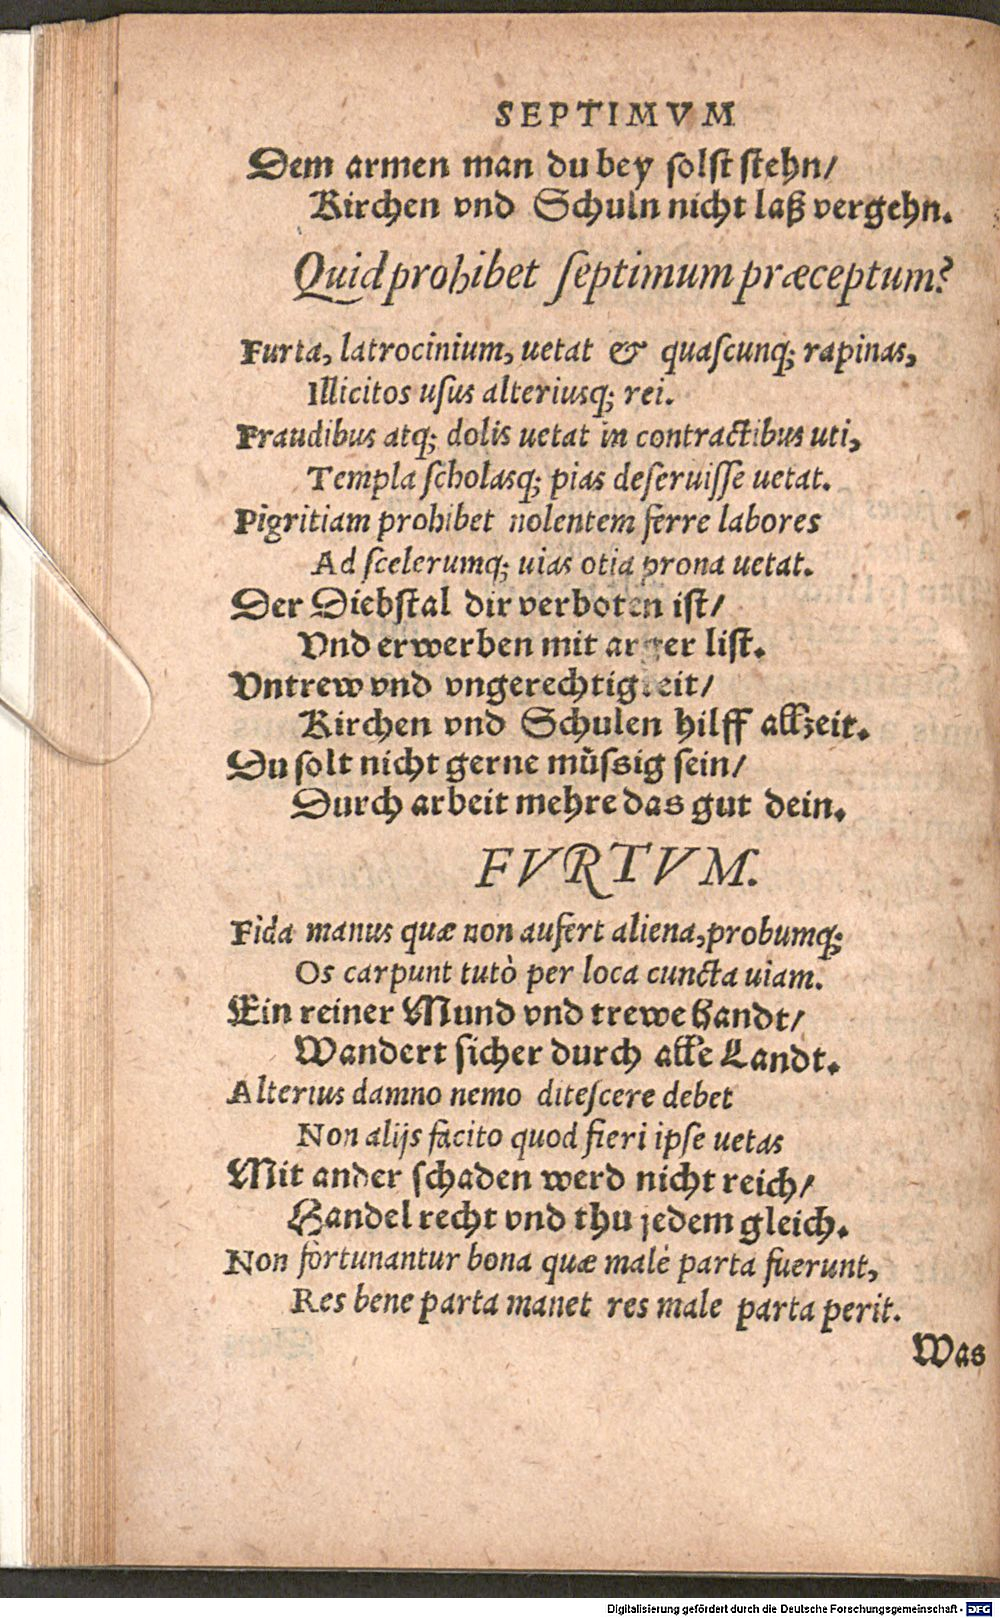 SEPTIMVM
Dem armen man du bey solst stehn/
Kirchen vnd Schuln nicht laß vergehn.
Quid prohibet septimum præceptum?
Furta, latrocinium, uetat & quascunq; rapinas,
Illicitos usus alteriusq; rei.
Fraudibus atq; dolis uetat in contractibus uti,
Templa scholasq; pias deseruisse uetat.
Pigritiam prohibet nolentem ferre labores
Ad scelerumq; uias otia prona uetat.
Der Diebstal dir verboten ist/
Vnd erwerben mit arger list.
Vntrew vnd vngerechtigkeit/
Kirchen vnd Schulen hilff allzeit.
Du solt nicht gerne müssig sein/
Durch arbeit mehre das gut dein.
FVRTVM.
Fida manus quæ non aufert aliena, probumq;
Os carpunt tutò per loca cuncta uiam.
Ein reiner Mund vnd trewe Handt/
Wandert sicher durch alle Landt.
Alterius damno nemo ditescere debet
Non alijs facito quod fieri ipse uetas
Mit ander schaden werd nicht reich/
Handel recht vnd thu jedem gleich.
Non fortunantur bona quæ malè parta fuerunt,
Res bene parta manet res male parta perit.
Was
Digitalisierung gefördert durch die Deutsche Forschungsgemeinschaft - DFG